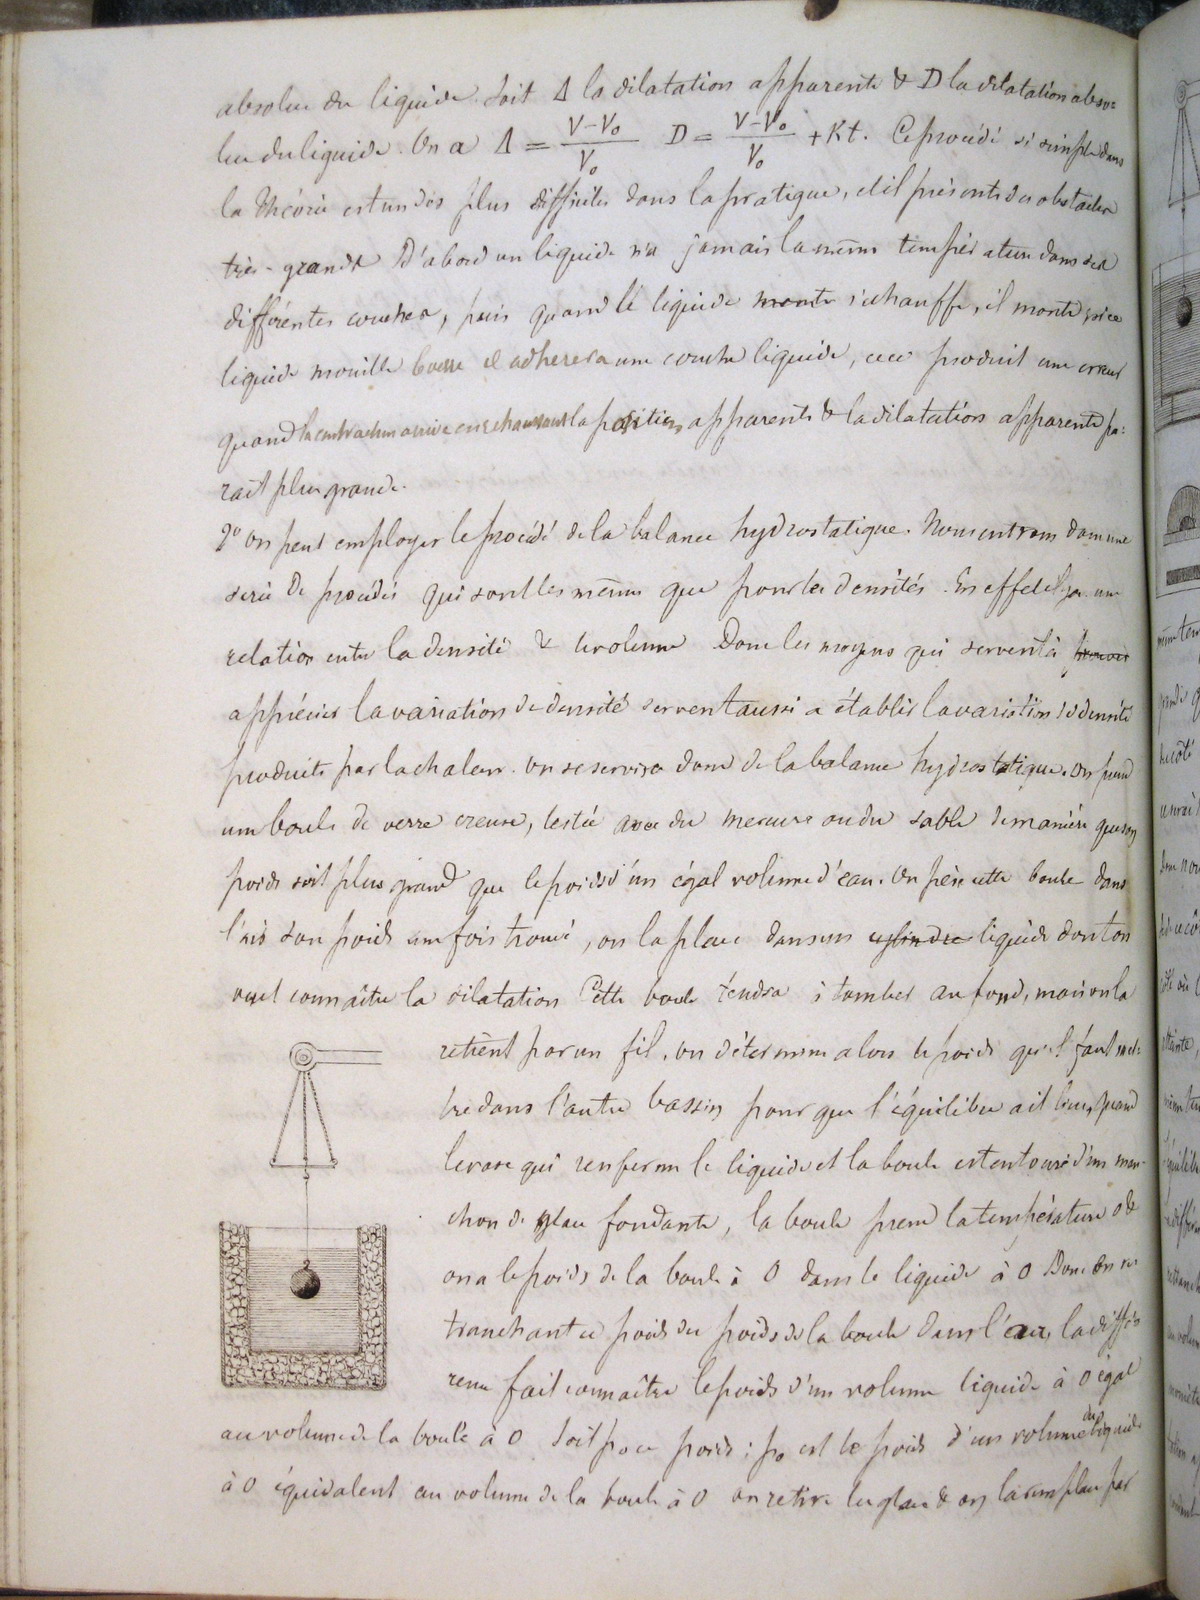 absolue du liquide. Soit Δ la dilatation apparente & D la dilatation abso=
lue du liquide. On a Δ = V-V₀/V₀ D = V-V₀/V₀ + Kt. Ce procédé si simple dans
la théorie est un des plus difficiles dans la pratique, et il présente des obstacles
très-grands D'abord un liquide n'a jamais la même température dans ses
différentes couches, puis quand le liquide monte s'échauffe, il monte si ce
liquide mouille le verre il adherera une couche liquide, ceci produit une erreur
quand la contraction arrive la position apparente & la dilatation apparente pa=
rait plus grande.
2° On peut employer le procédé de la balance hydrostatique. Nous entrons dans une
série de procédés qui sont les mêmes que pour les densités. En effet il y a une
relation entre la densité & le volume Donc les moyens qui servent à trouver
apprécier la variation de densité servent aussi a établir la variation de densité
produite par la chaleur. On se servira donc de la balance hydrostatique. On prend
une boule de verre creuse, lestée avec du mercure ou du sable de manière que son
poids soit plus grand que le poids d'un égal volume d'eau. On pèse cette boule dans
l'air son poids une fois trouvé, on la place dans un cylindre liquide dont on
veut connaître la dilatation Cette boule tendra à tomber au fond, mais on la
retient par un fil, on détermine alors le poids qu'il faut met=
tre dans l'autre bassin pour que l'équilibre ait lieu, quand
le vase qui renferme le liquide et la boule est entouré d'un man-
chon de glace fondante, la boule prend la température 0 &
on a le poids de la boule à 0 dans le liquide à 0 Donc en re
tranchant ce poids du poids de la boule dans l'air, la diffé=
rence fait connaître le poids d'un volume liquide à 0 égal
au volume de la boule à 0 Soit p₀ ce poids; p₀ est le poids d'un volume du liquide
à 0 équivalent au volume de la boule à 0 on retire la glace & on la remplace par